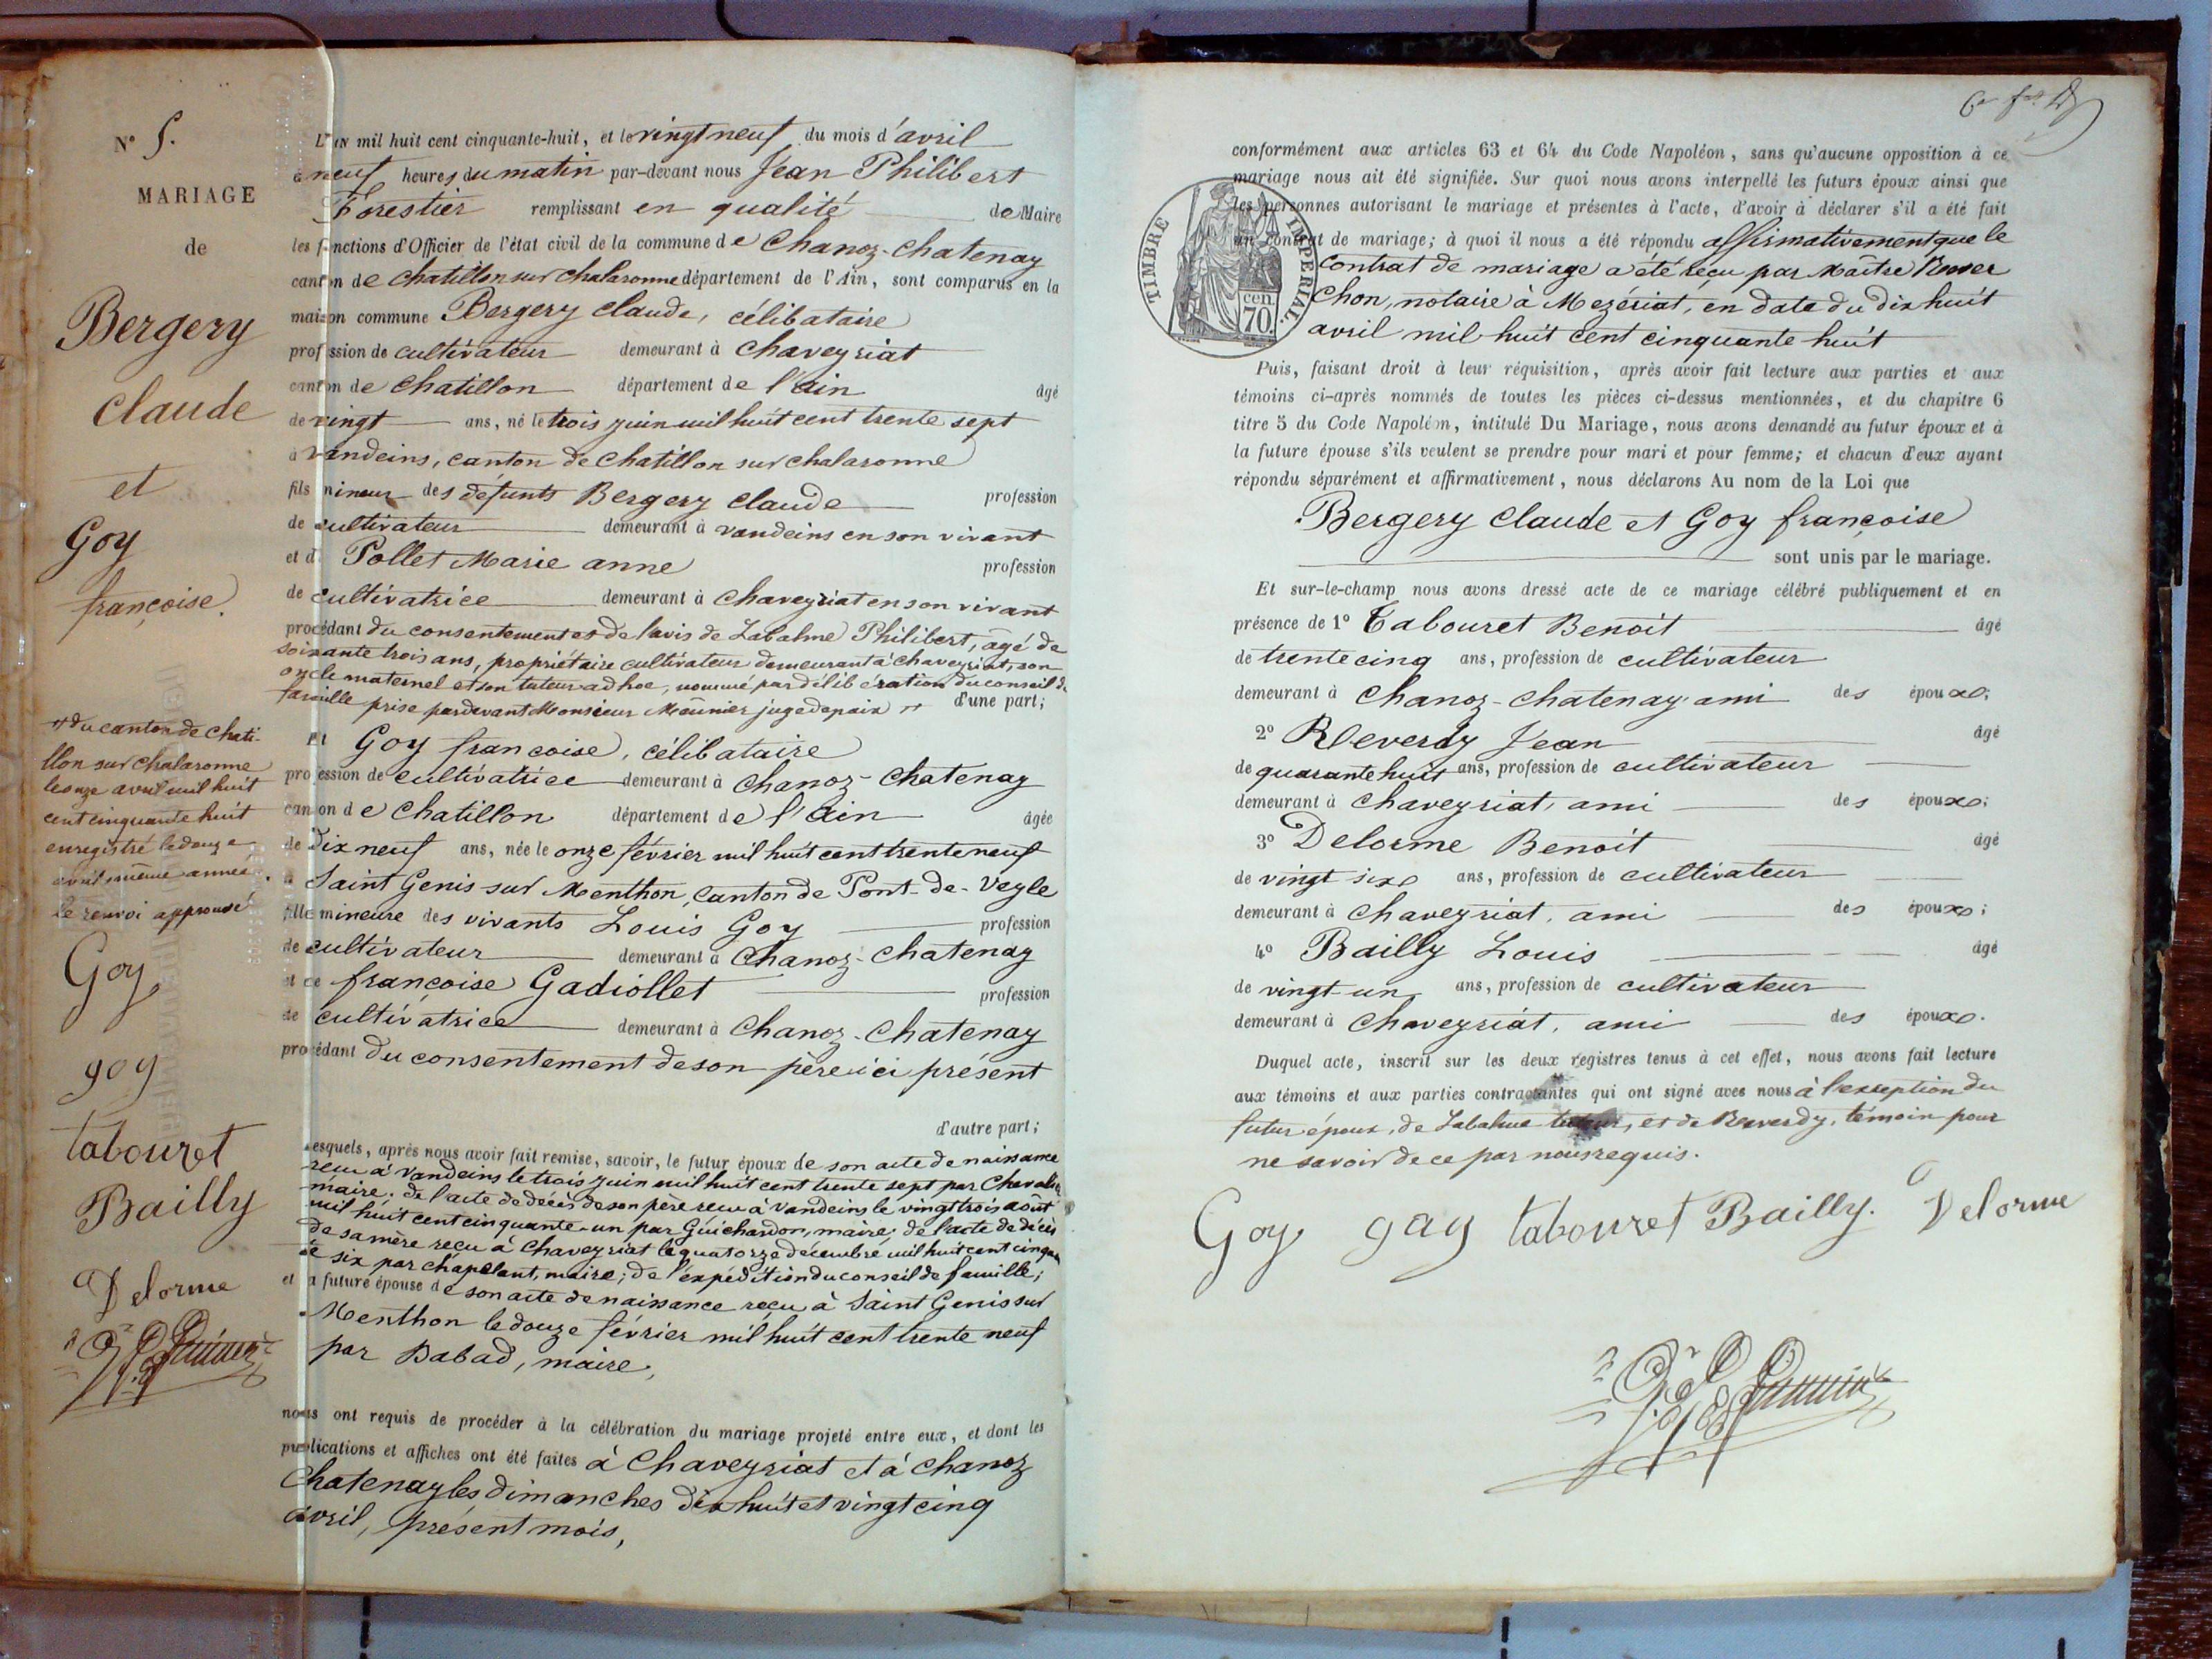 N° 5.
MARIAGE
de
Bergery
claude
et
Goy
françoise.
# du canton de Chati-
llon sur Chalaronne
le onze avril mil huit
cent cinquante huit
enregistré le douze
avril même année.
le renvoi approuvé
Goy
goy
tabouret
Bailly
Delorme
L'an mil huit cent cinquante-huit, et le vingt neuf du mois d'avril
à neuf heures du matin par-devant nous Jean Philibert
Forestier remplissant en qualité de Maire
les fonctions d'Officier de l'état civil de la commune de Chanoz-Chatenay
canton de Chatillon sur Chalaronne département de l'Ain, sont comparus en la
maison commune Bergery claude, célibataire
profession de cultivateur demeurant à Chaveyriat
canton de Chatillon département de l'ain âgé
de vingt ans, né le trois juin mil huit cent trente sept
à Vandeins, canton de Chatillon sur chalaronne
fils mineur des défunts Bergery claude profession
de cultivateur demeurant à vandeins en son vivant
et de Pollet Marie anne profession
de cultivatrice demeurant à Chaveyriat en son vivant
procédant du consentement et de l'avis de Labalme Philibert, agé de
soixante trois ans, propriétaire cultivateur demeurant à chaveyriat, son
oncle maternel et son tuteur ad hoc, nommé par délibération du conseil de
famille prise pardevant Monsieur Meunier juge de paix # d'une part;
Et Goy francoise, célibataire
profession de cultivatrice demeurant à Chanoz-Chatenay
canton de Chatillon département de l'ain âgée
de Dix neuf ans, née le onze février mil huit cent trente neuf
à Saint Genis sur Menthon, canton de Pont-de-Veyle
fille mineure des vivants Louis Goy profession
de cultivateur demeurant à Chanoz-Chatenay
et de françoise Gadiollet profession
de cultivatrice demeurant à Chanoz-Chatenay
procédant du consentement de son père ici présent
d'autre part;
Lesquels, après nous avoir fait remise, savoir, le futur époux de son acte de naissance
reçu à Vandeins le trois juin mil huit cent trente sept par Chevalier
maire; de l'acte de décès de son père reçu à Vandeins le vingt trois août
mil huit cent cinquante-un par Guichardon, maire; de l'acte de décès
de sa mère reçu à Chaveyriat le quatorze décembre mil huit cent cinquan
te six par chapelant, maire; de l'expédition du conseil de famille;
et la future épouse de son acte de naissance reçu à Saint Genis sur
Menthon le douze février mil huit cent trente neuf
par Dabad, maire,
nous ont requis de procéder à la célébration du mariage projeté entre eux, et dont les
publications et affiches ont été faites à Chaveyriat et à Chanoz
Chatenay les dimanches dix huit et vingt cinq
avril, présent mois,
conformément aux articles 63 et 64 du Code Napoléon, sans qu'aucune opposition à ce
mariage nous ait été signifiée. Sur quoi nous avons interpellé les futurs époux ainsi que
les personnes autorisant le mariage et présentes à l'acte, d'avoir à déclarer s'il a été fait
un contrat de mariage; à quoi il nous a été répondu affirmativement que le
TIMBRE IMPERIAL.
cen.
70.
Contrat de mariage a été reçu par Maître
Chon, notaire à Mezériat, en date du dix huit
avril mil huit cent cinquante huit
Puis, faisant droit à leur réquisition, après avoir fait lecture aux parties et aux
témoins ci-après nommés de toutes les pièces ci-dessus mentionnées, et du chapitre 6
titre 5 du Code Napoléon, intitulé Du Mariage, nous avons demandé au futur époux et à
la future épouse s'ils veulent se prendre pour mari et pour femme; et chacun d'eux ayant
répondu séparément et affirmativement, nous déclarons Au nom de la Loi que
Bergery Claude et Goy françoise
sont unis par le mariage.
Et sur-le-champ nous avons dressé acte de ce mariage célébré publiquement et en
présence de 1° Tabouret Benoit âgé
de trente cinq ans, profession de cultivateur
demeurant à Chanoz-Chatenay ami des époux;
2° Reverdy Jean âgé
de quarante huit ans, profession de cultivateur
demeurant à Chaveyriat, ami des époux;
3° Delorme Benoit âgé
de vingt six ans, profession de cultivateur
demeurant à Chaveyriat, ami des époux;
4° Bailly Louis âgé
de vingt-un ans, profession de cultivateur
demeurant à Chaveyriat, ami des époux.
Duquel acte, inscrit sur les deux registres tenus à cet effet, nous avons fait lecture
aux témoins et aux parties contractantes qui ont signé avec nous à l'exception du
futur époux, de Labalme tuteur, et de Reverdy, témoin pour
ne savoir de ce par nous requis.
Goy gay tabouret Bailly. Delorme